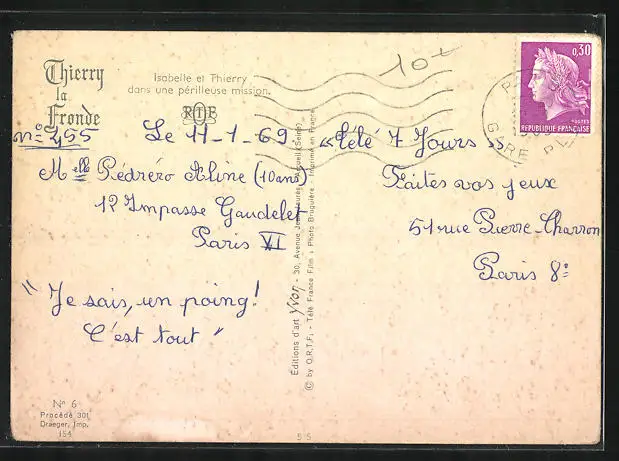 Thierry
la
Fronde
Isabelle et Thierry
dans une périlleuse mission.
RTF
10+
n° 455
Le 11-1-69.
Melle Pédréro Aline (10ans)
12 Impasse Gaudelet
Paris XI
"Je sais, un poing!
C'est tout"
N° 6
Procédé 301
Draeger, Imp.
154
Editions d'art Yvon - 30, Avenue
Imprimé en France
© by O.R.T.F. - Télé France Film - Photo Bruguière -
55
0,30
POSTES
REPUBLIQUE FRANÇAISE
GARE
« Télé 7 Jours »
Faites vos jeux
51 rue Pierre-Charron
Paris 8e